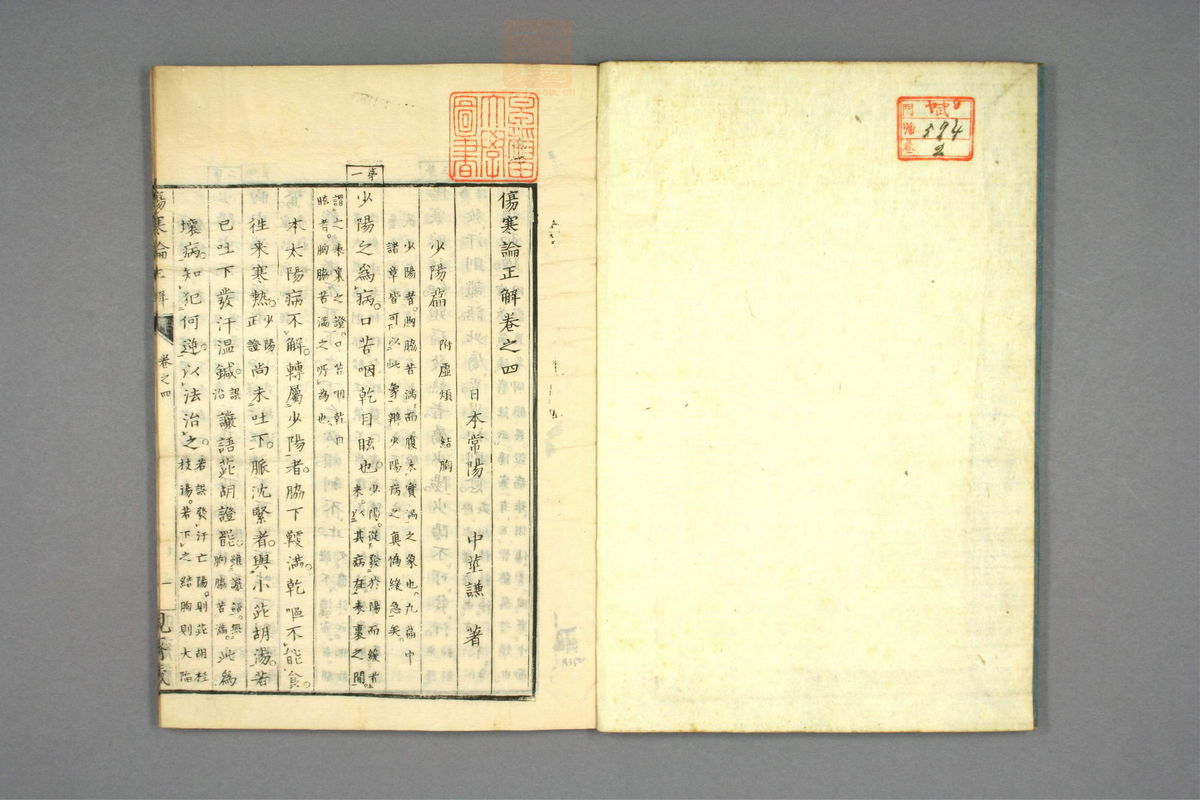 貳
門
號 594
卷 2
京都帝國大學圖書
傷寒論正解卷之四
日本常陽 中莖謙 著
少陽篇 附虛煩 結胸
少陽者胸脇苦滿而腹未實滿之象也凡篇中
諸章皆可以此象辨少陽病之真偽緩急矣
章一
少陽之爲病口苦咽乾目眩也少陽從發於陽而緩者
來以其病在表裏之間
謂之表裏之證口苦咽乾目
眩者胸脇苦滿之所爲也
本太陽病不解轉屬少陽者脇下鞕滿乾嘔不能食
往來寒熱少陽正證尚未吐下脈沈緊者與小茈胡湯若
已吐下發汗溫鍼誤治讝語茈胡證罷雖讝語無胸脇苦滿此爲
壞病知犯何逆以法治之若誤發汗亡陽則茈胡桂
枝湯若下之結胸則大陷
傷寒論正解 卷之四 一